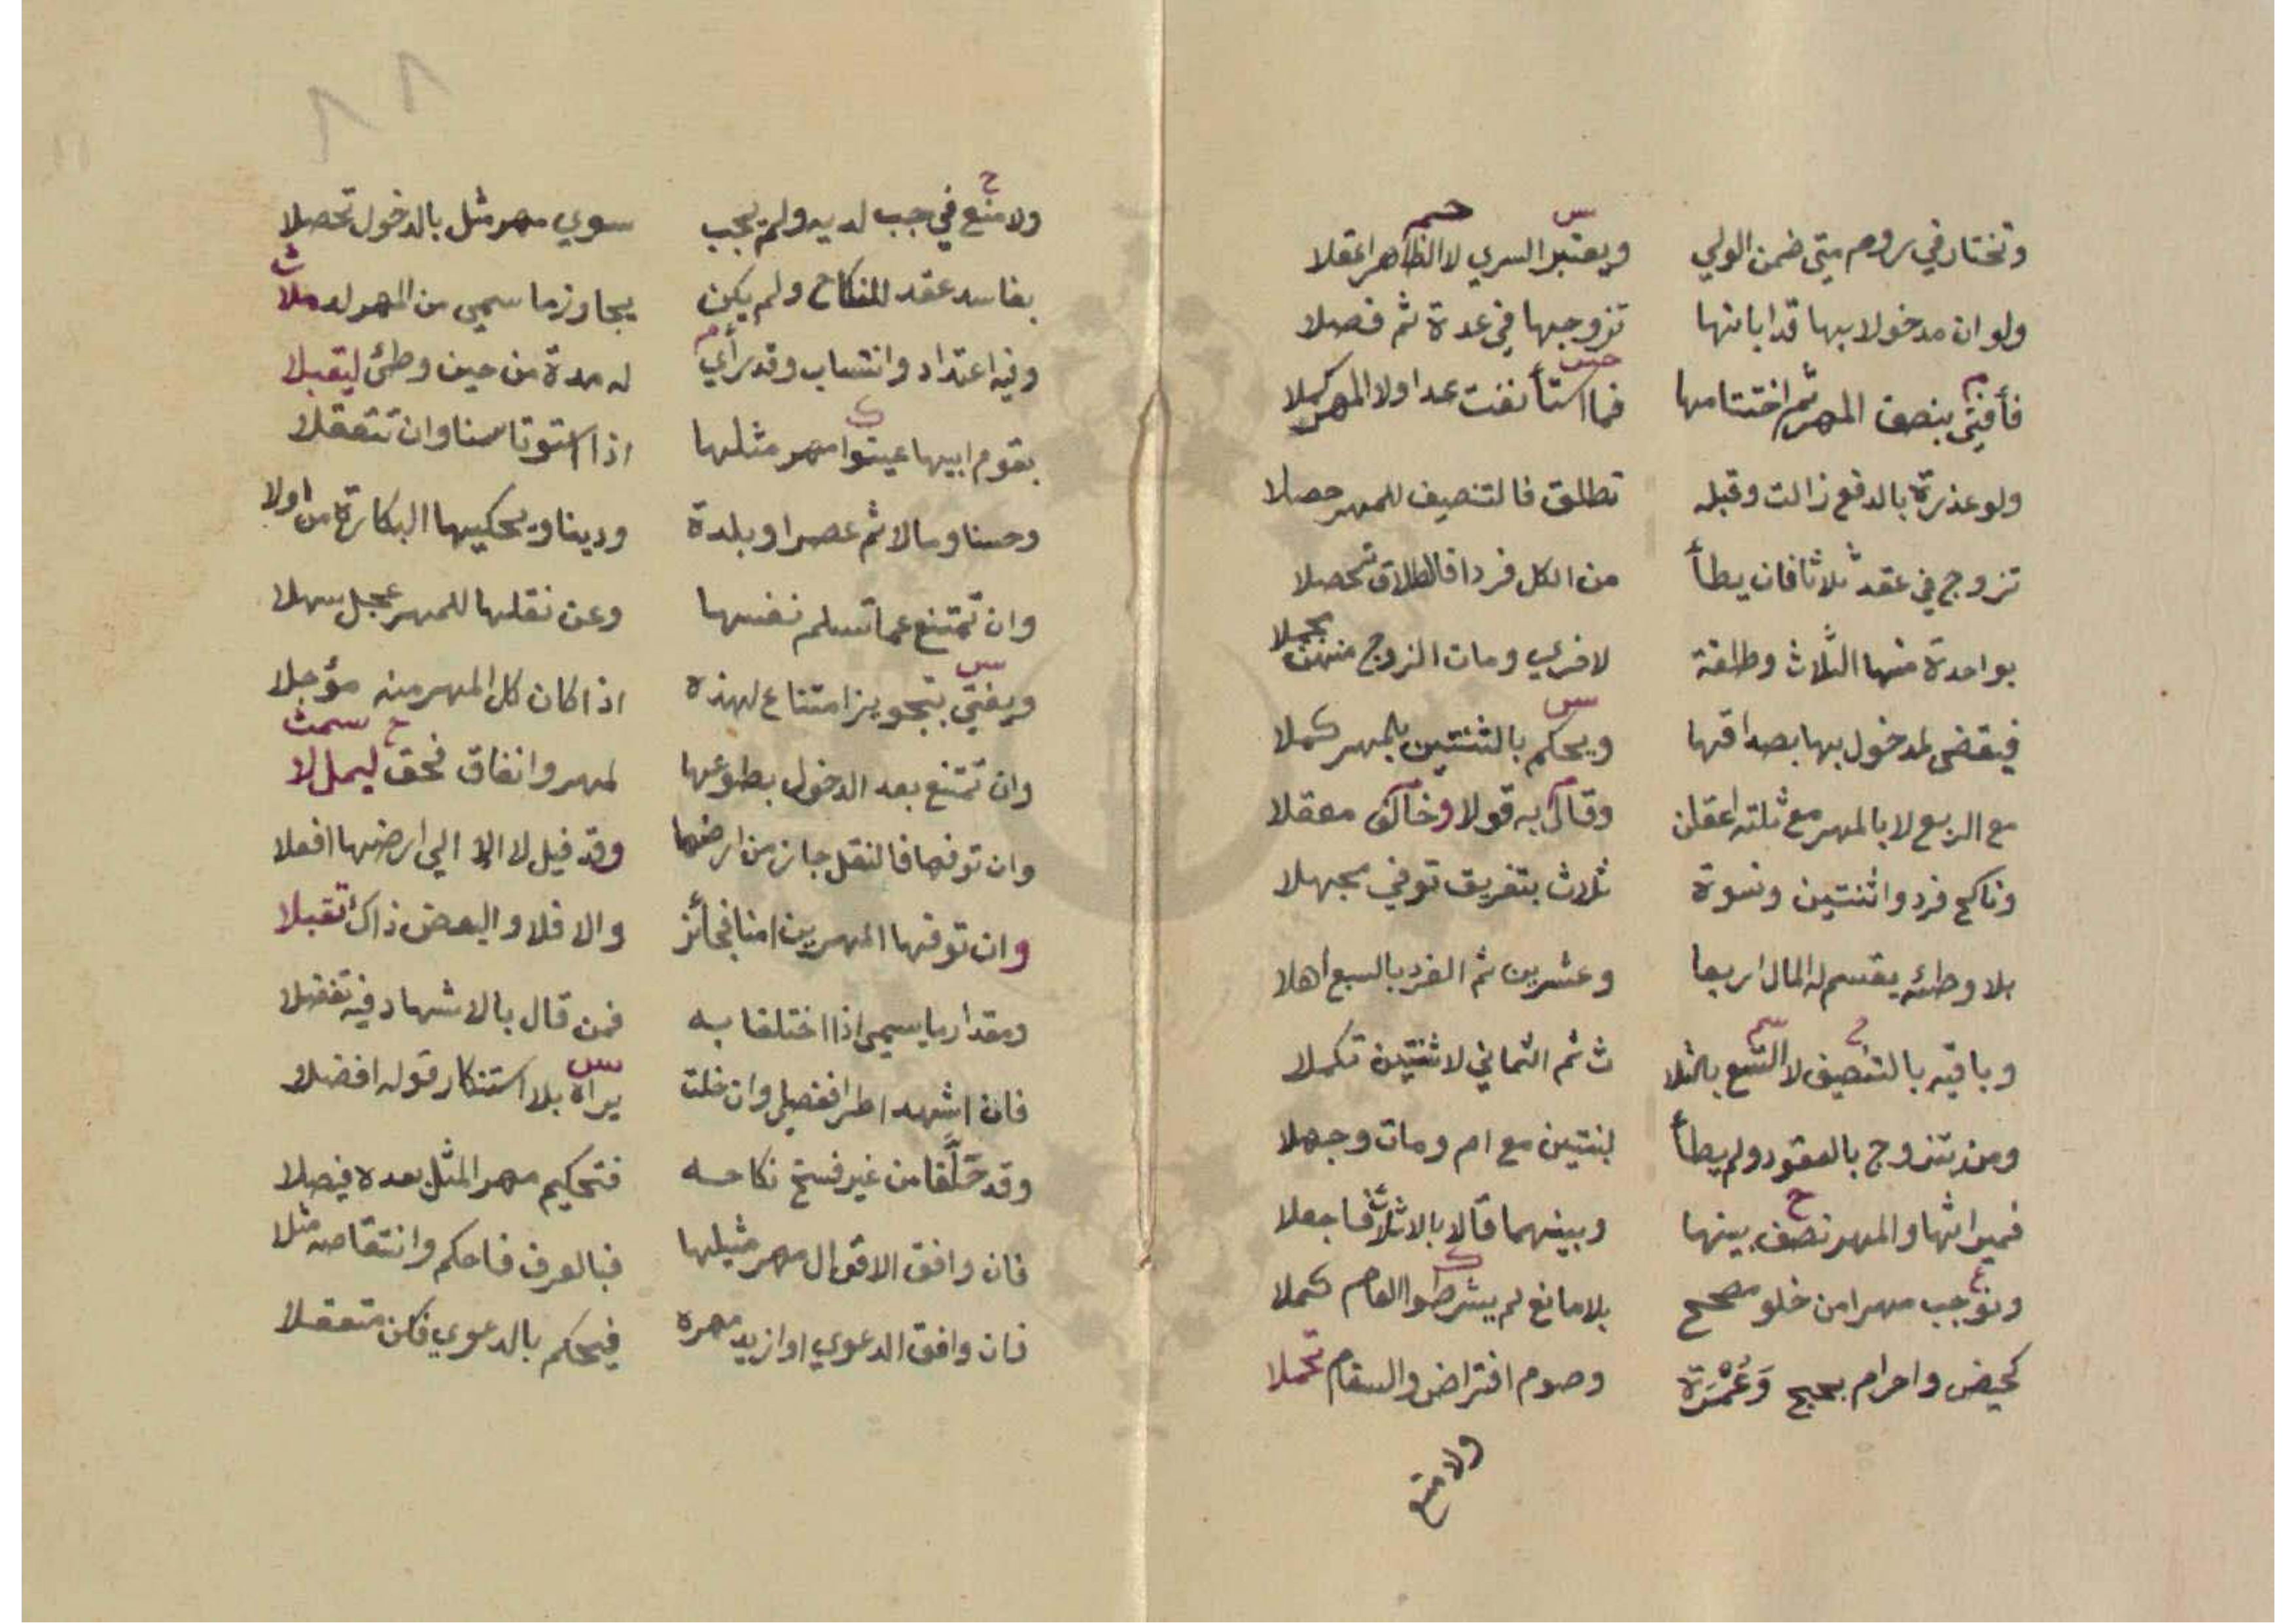 وتختار في روم متى ضمن الولي ويعتبر السري لا الظاهر اعقلا
ولو ان مدخولا بها قد ابانها تزوجها في عدة ثم فصلا
فأفتى بنصف المهر ثم اختتامها فما استأنفت عدا ولا المهر كملا
ولو عذرة بالدفع زالت وقبله تطلق فالتنصيف للمهر حصلا
تزوج في عقد ثلاثا فان يطأ من الكل فردا فالطلاق تحصلا
بواحدة منها الثلاث وطلقة لاخرى ومات الزوج منهن مجملا
فيقضى لمدخول بها بصداقها ويحكم بالثنتين بالمهر كملا
مع الربع لا بالمهر مع ثلثه اعقلن وقال به قولا وخالف معقلا
وناكح فرد واثنتين ونسوة ثلاث بتفريق توفي مجهلا
بلا وطئه يقسم له المال اربعا وعشرين ثم الفرد بالسبع أهلا
وباقيه بالتنصيف لا التسع بالثلا ث ثم الثماني لاثنتين تكملا
ومن تتزوج بالعقود ولم يطأ لبنتين مع ام ومات وجهلا
فميراثها والمهر نصف بينها وبينهما قالا بالاثلاث فاجعلا
ونوجب مهرا من خلو مصحح بلا مانع لم يشرطوا العام كملا
كحيض واحرام بحج وَعُمْرَة وصوم افتراض والسقام تحملا
ولا منع
٨٨
ولا منع في جب لديه ولم يجب سوي مهر مثل بالدخول تحصلا
بفاسد عقد للنكاح ولم يكن يجاوز ما سمي من المهر له ملا
وفيه اعتداد وانتساب وقد رأي له مدة من حين وطئ ليقبلا
بقوم ابيها عينوا مهر مثلها اذا استوتا سنا وان تتعقلا
وحسنا ومالا ثم عصرا وبلدة ودينا ويحكيها البكارة من اولا
وان تمتنع عما تسلم نفسها وعن نقلها للمهر عجل سهلا
ويفتي بتجويز امتناع لهذه اذا كان كل المهر منه مؤجلا
وان تمتنع بعد الدخول بطوعها لمهر وانفاق فحق ليملل لا
وان توفها فالنقل جاز من ارضها وقد قيل لا الا الي ارضها افعلا
وان توفها المهرين امنا فجائز والا فلا والبعض ذاك تقبلا
ومقدار ما يسمى اذا اختلفا به فمن قال بالاشهاد فيه تفضلا
فان اشهدا طرا ففصل وان خلت يراه بلا استنكار قوله افضلا
وقد حَلَّفا من غير فسخ نكاحه فتحكيم مهر المثل بعده فيصلا
فان وافق الاقوال مهر مثيلها فبالعرف فاحكم وانتقاصه مثلا
فان وافق الدعوي او ازيد مهره فيحكم بالدعوي فكن متعقلا